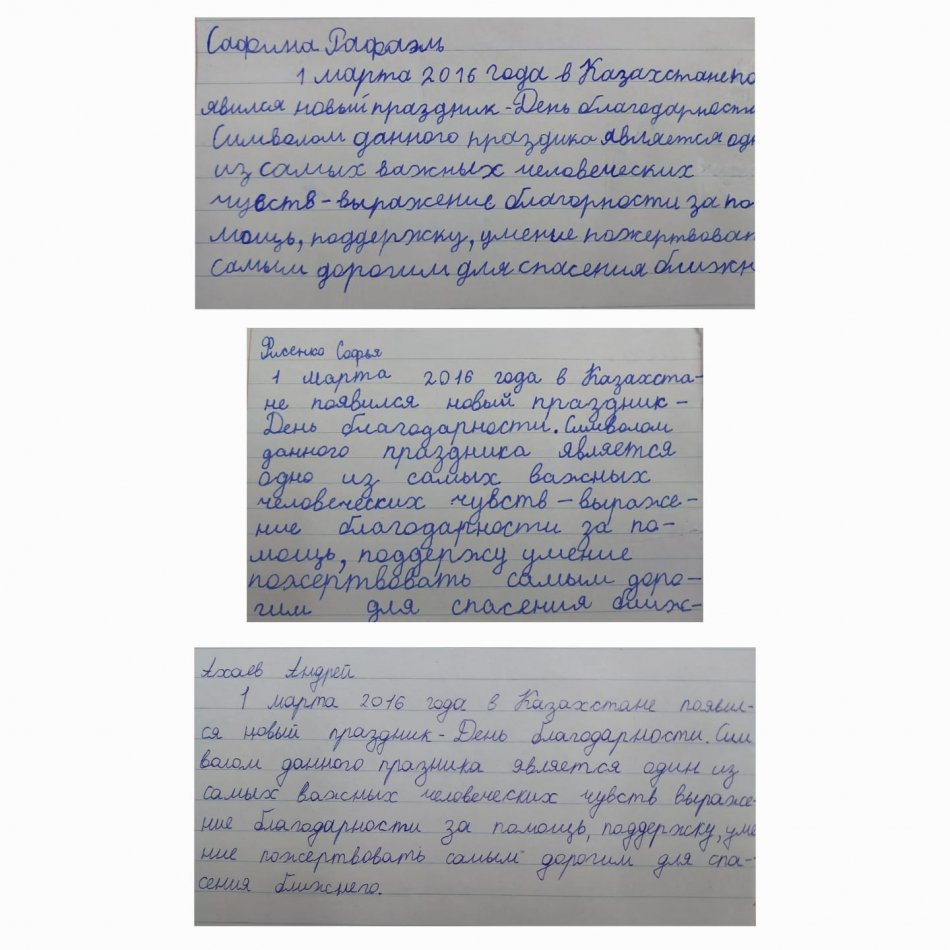 Сафина Рафаэль
1 марта 2016 года в Казахстане по
явился новый праздник - День благодарности
Символом данного праздика является одн
из самых важных человеческих
чувств - выражение благорности за по
мощь, поддержку, умение пожертвоват
самым дорогим для спасения ближн
Фисенко Софья
1 марта 2016 года в Казахста-
не появился новый праздник -
День благодарности. Символом
данного праздника является
одно из самых важных
человеческих чувств - выраже-
ние благодарности за по-
мощь, поддержу умение
пожертвовать самым доро-
гим для спасения ближ-
Ахаев Андрей
1 марта 2016 года в Казахстане появил-
ся новый праздник - День благодарности. Сим
волом данного празника является один из
самых важных человеческих чувств выраже-
ние благодарности за помощь, поддержку, уме
ние пожертвовать самым дорогим для спа-
сения ближнего.